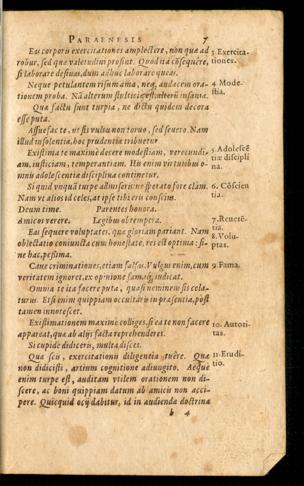 PARAENESIS 7
Eas corporis exercitationes amplectere, non quæ ad
3 Exercita-
tiones.
robur, sed quæ valetudini prosint. Quod ita cõsequêre,
si laborare desinas, dum adhuc laborare queas.
Neque petulantem risum ama, neq, audacem ora-
4 Mode-
stia.
tionem proba. Nã alterum stultitiæ, alterum insaniæ.
Quæ factu sunt turpia, ne dictu quidem decora
esse puta.
Assuefac te, ut sis vultu non toruo, sed seuero. Nam
illud insolentiæ, hoc prudentiæ tribuetur.
Existima te maxime decere modestiam, verecundi-
5 Adolescẽ
tiæ discipli
na.
am, iustitiam, temperantiam. His enim virtutibus o-
mnis adolescentiæ disciplina continetur.
Si quid vnquã turpe admiseris: ne sperato fore clàm.
6. Cõscien
tia.
Nam vt alios id celes, at ipse tibi eris conscius.
Deum time. Parentes honora.
Amicos verere. Legibus obtempera.
7. Reuerẽ-
tia.
Eas sequere voluptates, quæ gloriam pariant. Nam
8. Volu-
ptas.
oblectatio coniuncta cum honestate, res est optima: si-
ne hac, pessima.
Caue criminationes, etiam falsas. Vulgus enim, cum
9. Fama.
veritatem ignoret, ex opinione famæ iudicat.
Omnia te ita facere puta, quasi neminem sis cela-
turus. Etsi enim quippiam occultâris in præsentia, pòst
tamen innotescet.
Existimationem maximè colliges, si ea te non facere
10. Autori-
tas.
appareat, quæ ab alijs facta reprehenderes.
Si cupidè didiceris, multa disces.
Quæ scis, exercitationis diligentia tuêre. Quæ
11. Erudi-
tio.
non didicisti, artium cognitione adiungito. Aequè
enim turpe est, auditam vtilem orationem non di-
scere, ac boni quippiam datum ab amicis non acci-
pere. Quicquid ocij dabitur, id in audienda doctrina
b 4